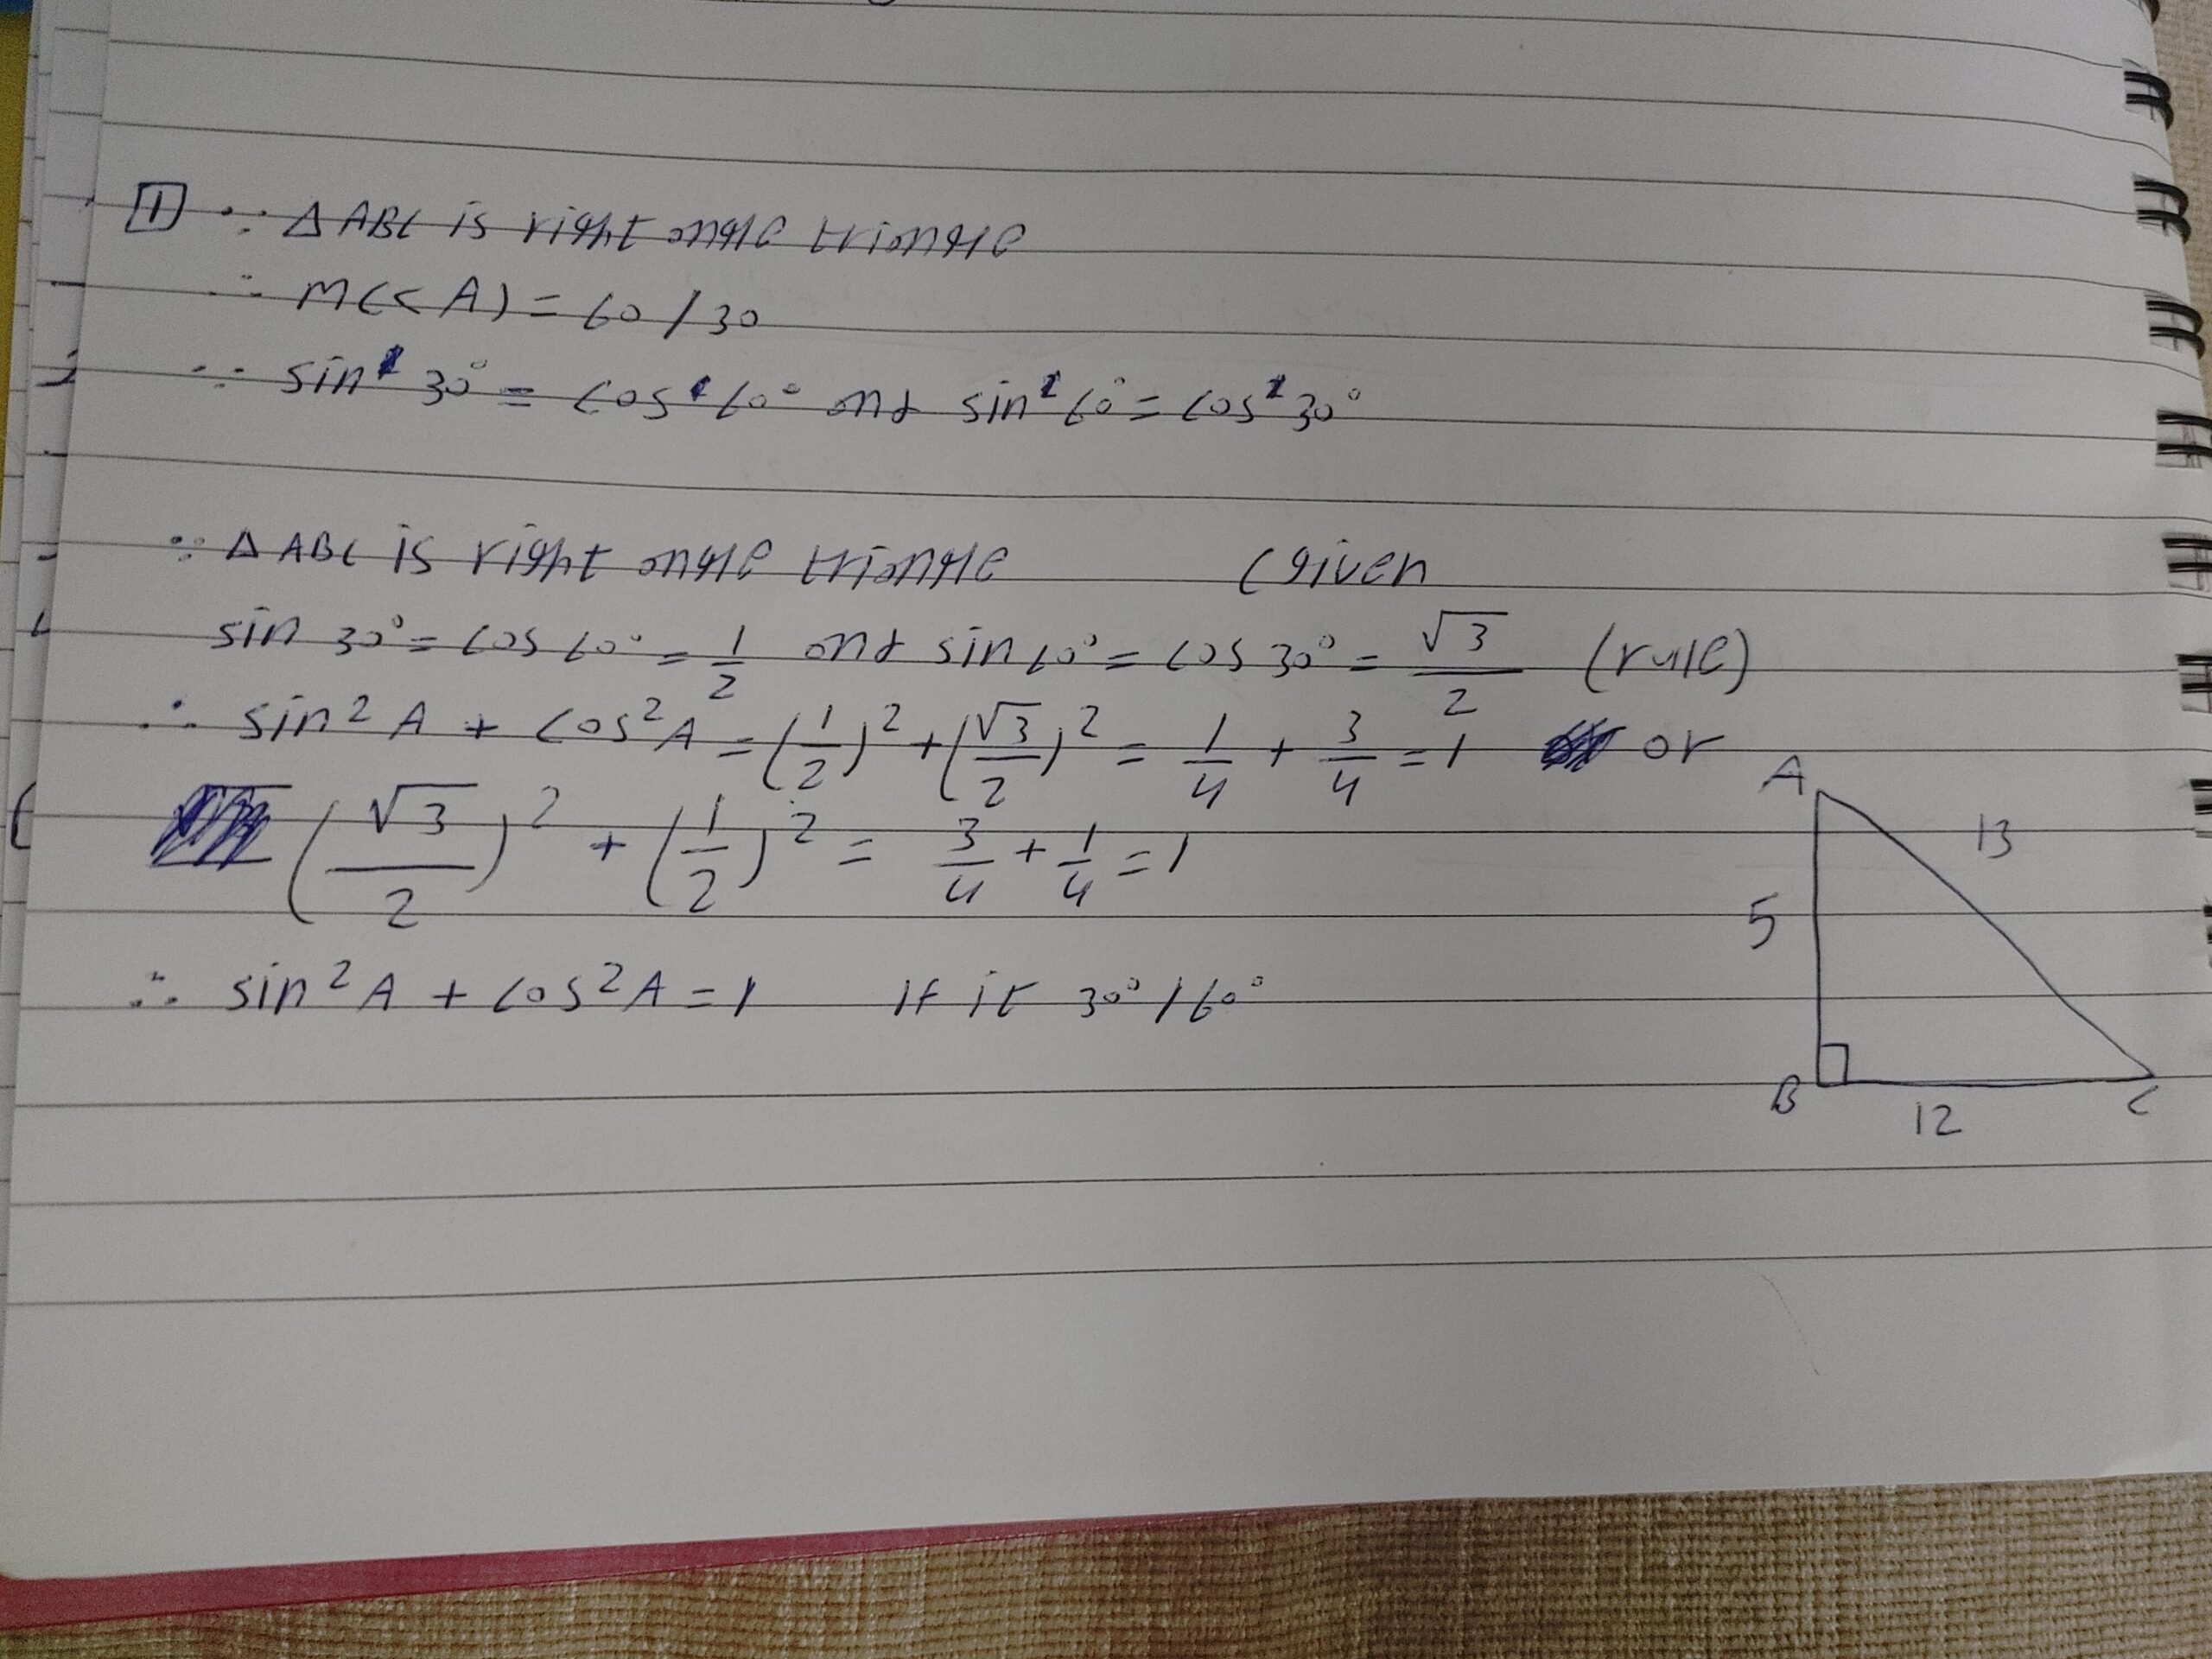 1 ∵ Δ ABC is right angle triangle
∴ m(< A) = 60 / 30
∵ sin² 30° = cos² 60° and sin² 60° = cos² 30°
∵ Δ ABC is right angle triangle (given
sin 30° = cos 60° = 1/2 and sin 60° = cos 30° = √3/2 (rule)
∴ sin² A + cos² A = (1/2)² + (√3/2)² = 1/4 + 3/4 = 1 or
(√3/2)² + (1/2)² = 3/4 + 1/4 = 1
∴ sin² A + cos² A = 1 If it 30° / 60°
A
13
5
B
12
C